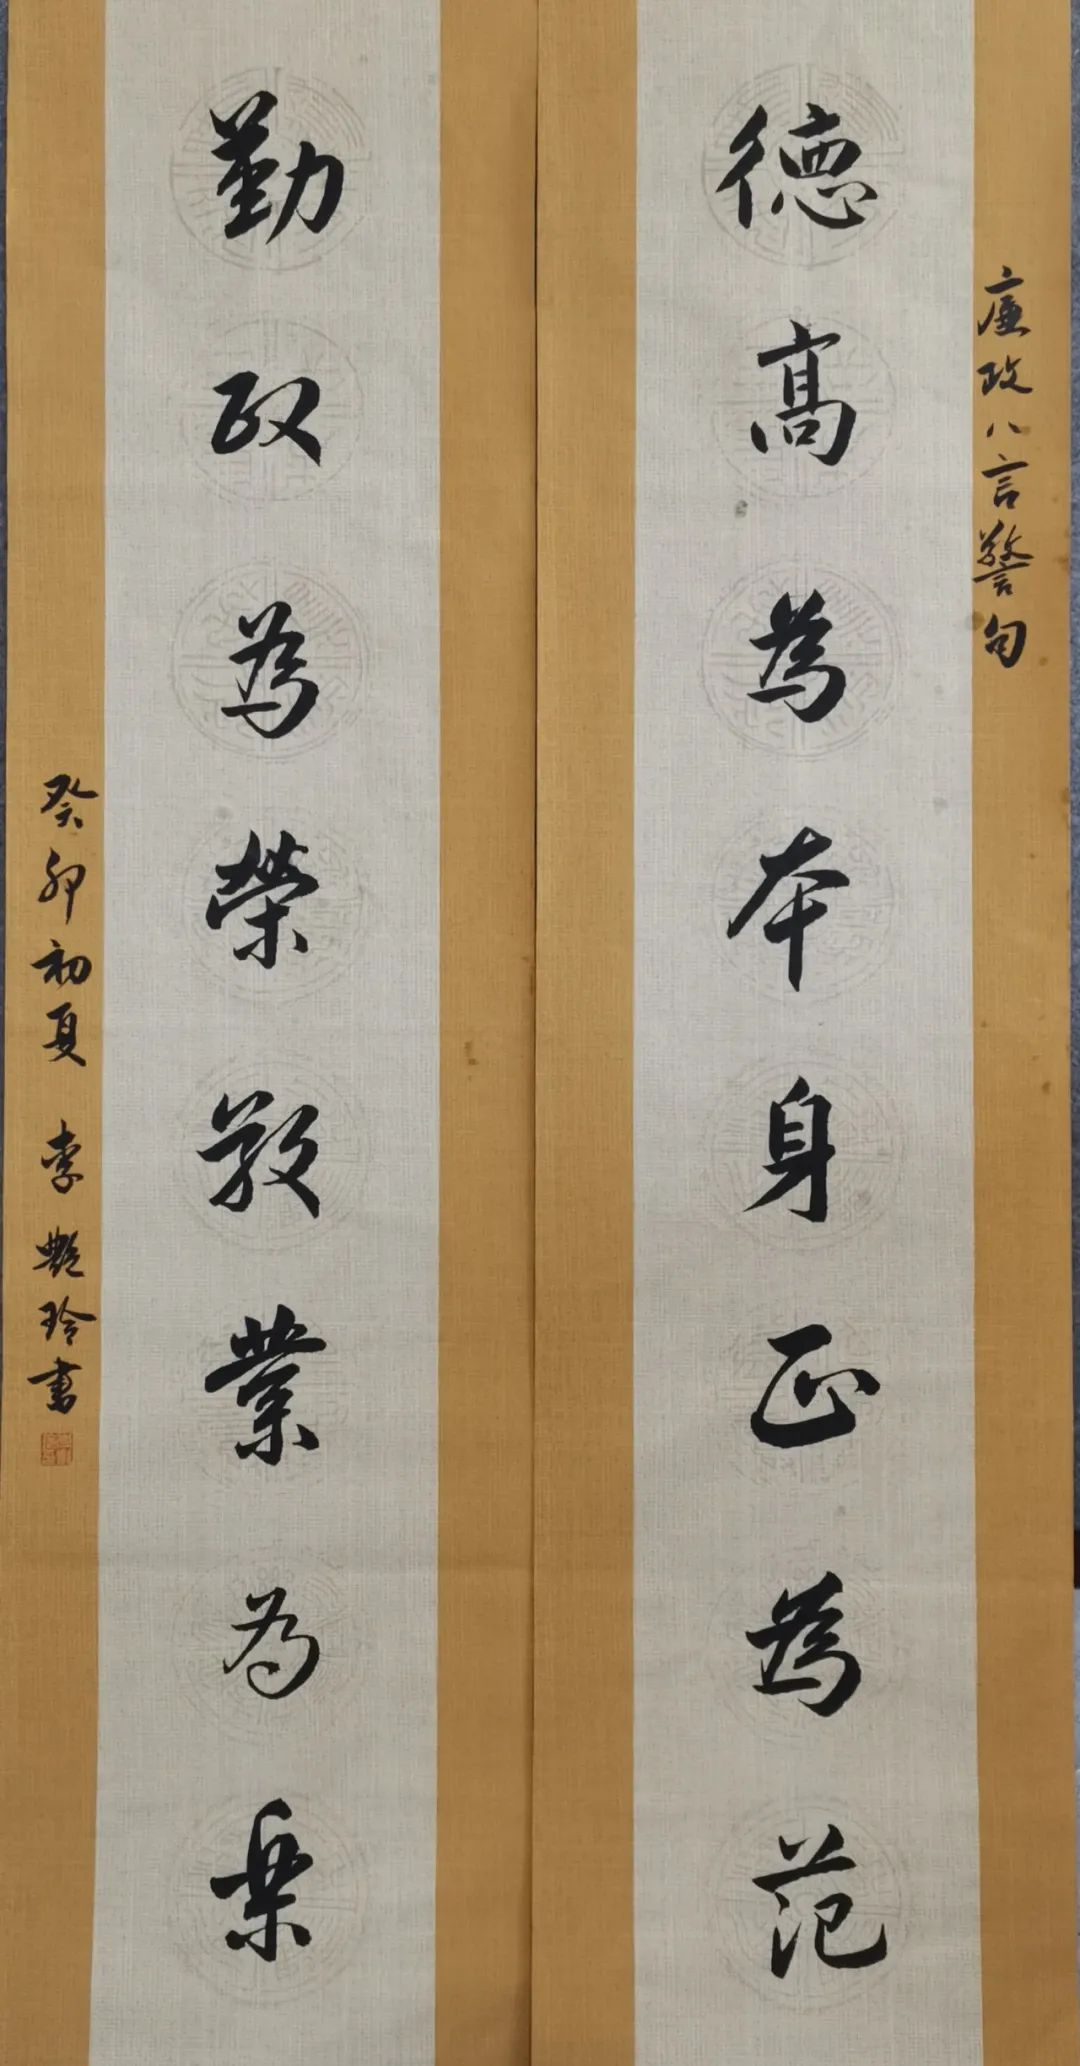 廉政八言警句
德高為本身正為范
勤政為榮敬業為樂
癸卯初夏 李艷玲書